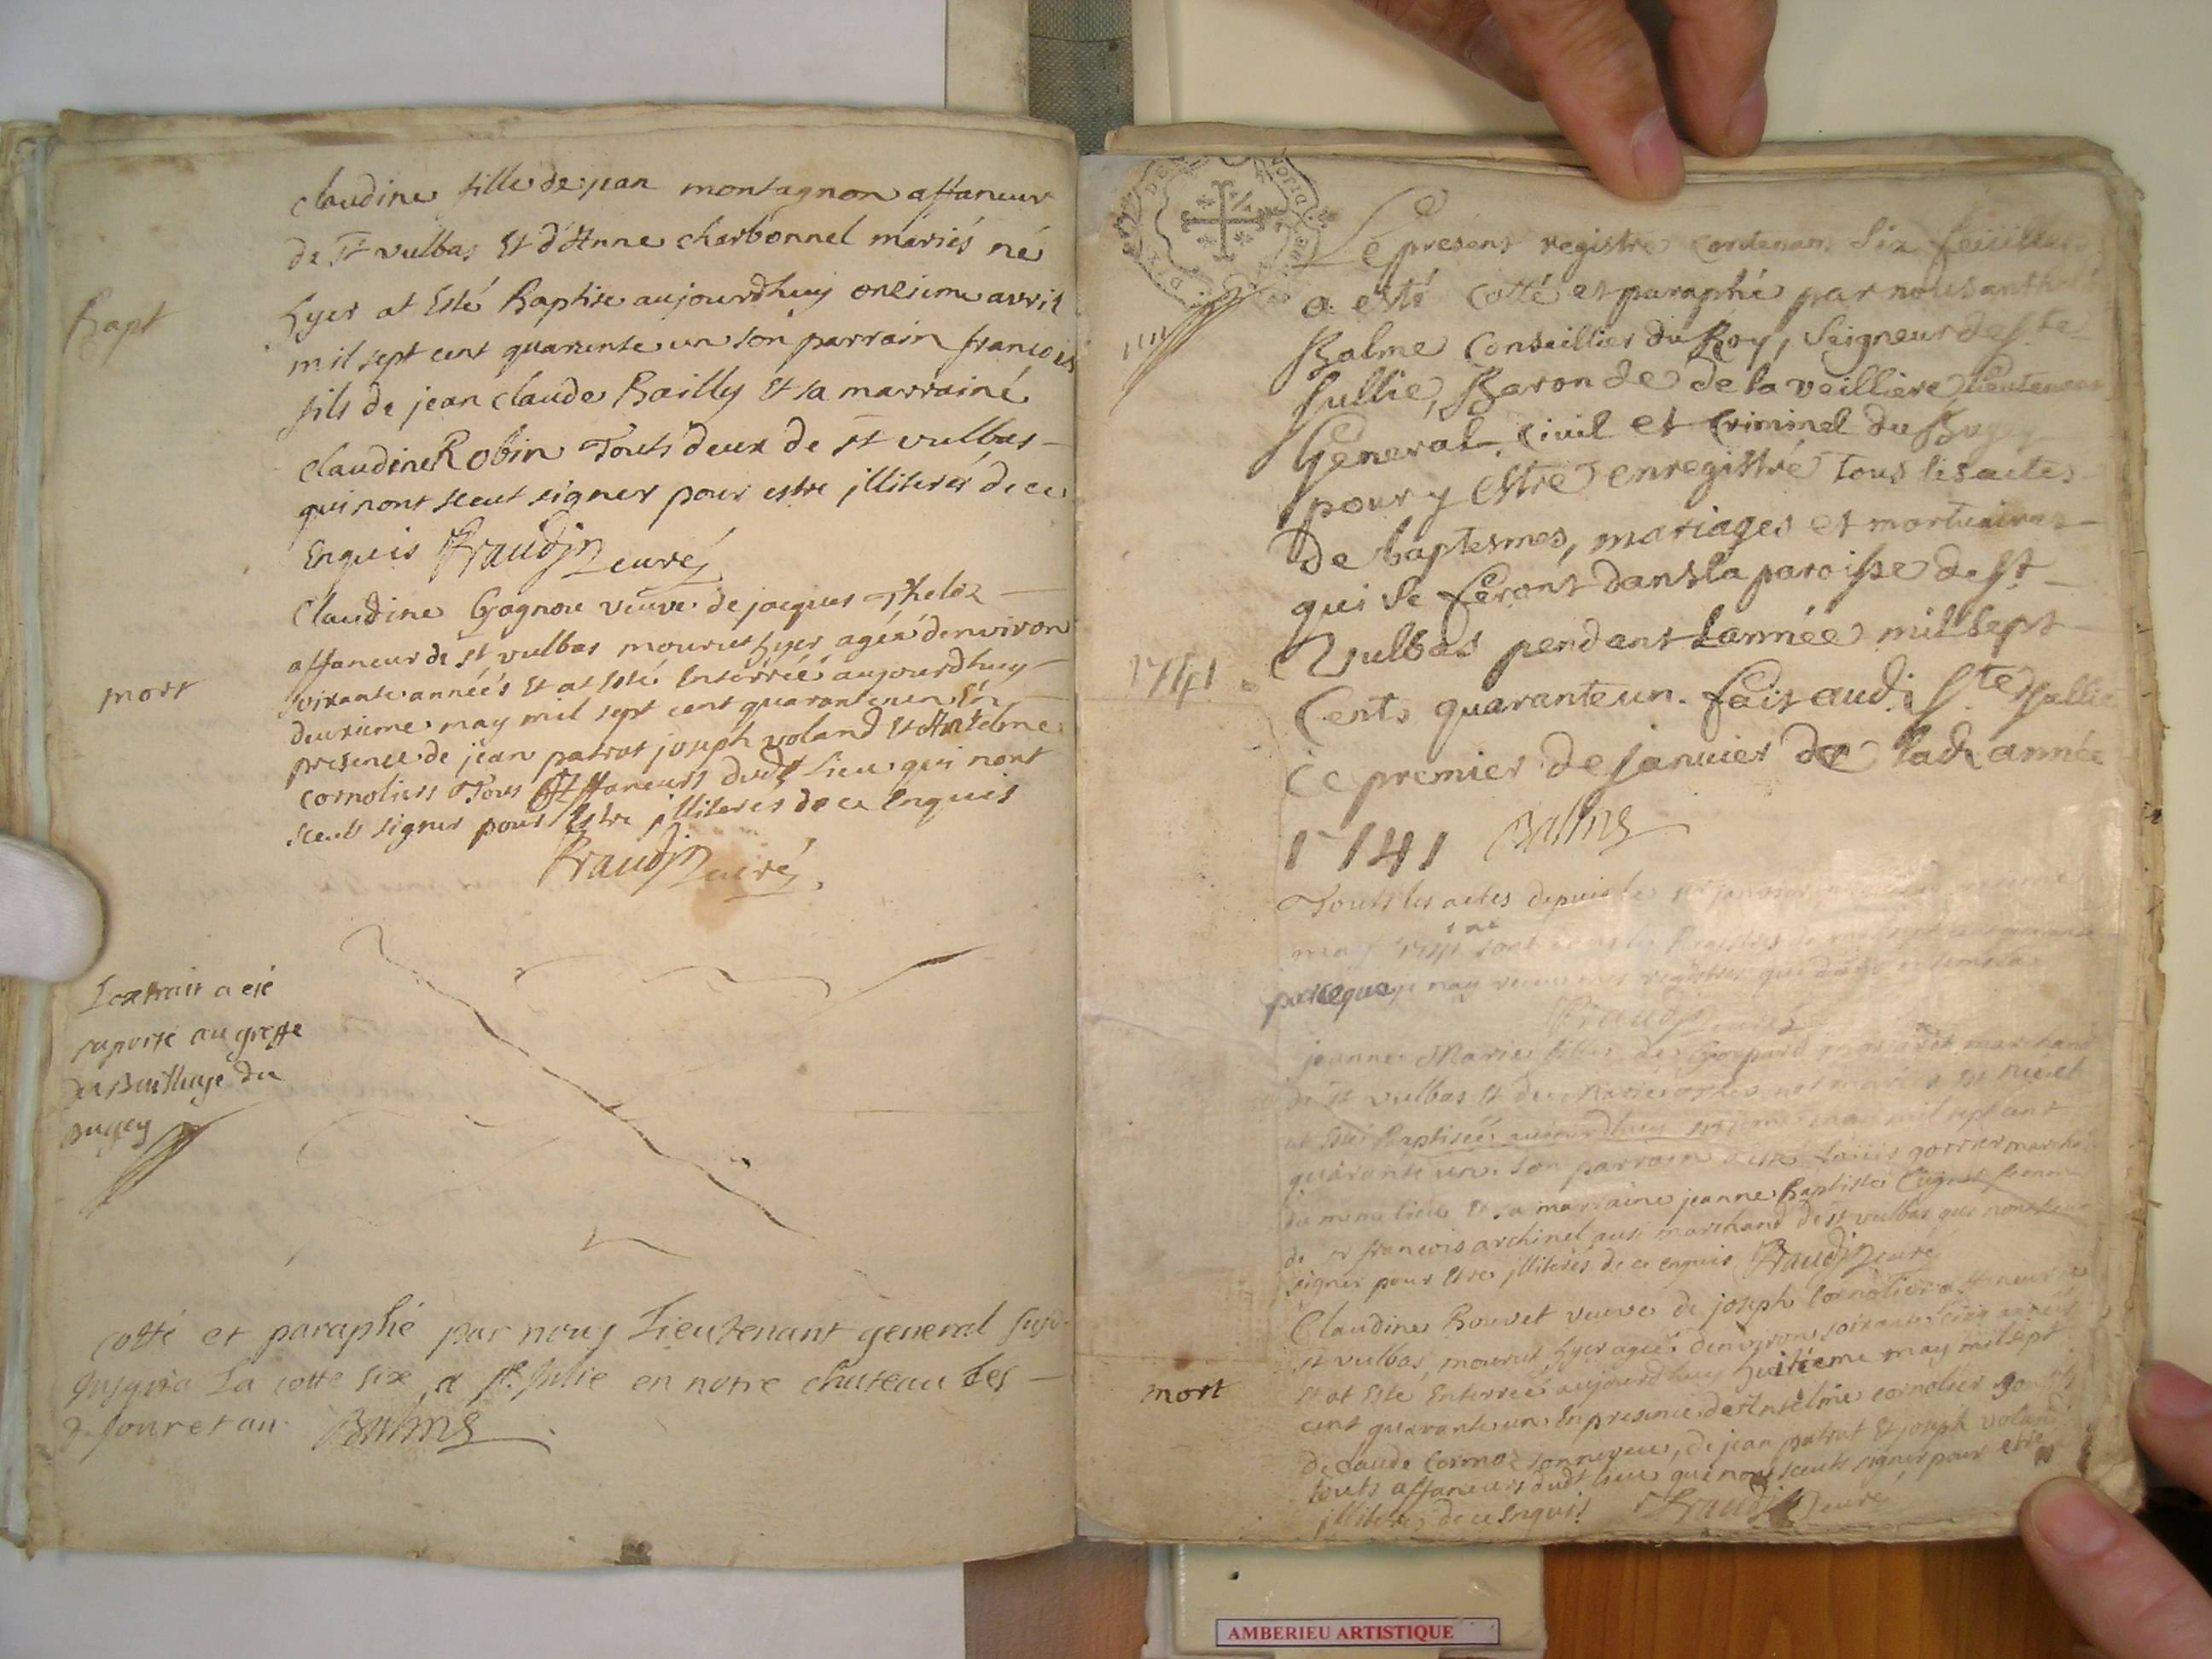 Claudine fille de jean montagnon affaneur
de St vulbas Et d'Anne charbonnel mariés né
hyer at Esté Baptise aujourdhuy onzieme avril
Bapt
mil sept cent quarente un son parrain francois
fils de jean claude Bailly Et sa marrainé
claudine Robin Touts deux de st vulbas
qui nont sceut signer pour estre jlliterés de ce
Enquis Fraudin curé
Claudine Gagnou veuve de jacques
affaneur de st vulbas mourut hyer agéé denviron
soixante annéés Et at esté Enterréé aujourdhuy
mort
deuxieme may mil sept cent quarante un En
presence de jean patrat joseph voland Et Antelme
cornoliers Tous Affaneurs dudt Lieu qui nont
sceuts signer pour Estre jlliteres de ce Enquis
Fraudin curé
Lextrait a eté
raporté au greffe
du Bailliage du
Bugey
cotté et paraphé par nous Lieutenant general susd.
jusqu'a La cotte six, a St. Julie en notre chateau Les
d. jour et an. Balme
Le présent registre contenant six feüilles
a esté cotté et paraphé par nous
Balme Conseillier du Roy, Seigneur de Ste
Jullie, Baron de de la veilliere, Lieutenant
Général Civil et Criminel du Bugey
pour y estre enregistré tous les actes
de baptesmes, mariages et mortuaires
qui se feront dans la paroisse de St
1741
Vulbas pendant Lannée mil sept
Cents quarante un. fait audi. Ste Jullie
Ce premier de Janvier de lad. année
1741 Balme
Touts les actes depuis le
may 1741 sont Registres de mil sept cent quarante
parceque je nay receu mes registres que
Fraudin curé
jeanne Marie fille de Gaspard marchand
de st vulbas Et de Marie mariés Est née et
at Esté Baptiséé aujourdhuy may mil sept cent
quarante un. son parrain a esté Loüis gorrier marchd
du meme lieu Et sa marraine jeanne Baptiste Cugnet femme
de sr francois archinel aussi marchand de st vulbas qui nont sceut
signer pour Etre jlliterés de ce enquis Fraudin curé
Claudine Bouvet veuve de joseph Cornolier affaneur de
st vulbas, mourut hyer agéé denviron soixante cinq annéés
mort
Et at Esté Enterréé aujourdhuy huitieme may mil sept
cent quarante un En presence de Antelme cornolier
de Claude Cormoz son neveu, de jean patrat Et joseph voland
touts affaneurs dudt lieu qui nont sceuts signer pour etre
jlliterés de ce Enquis Fraudin curé
AMBERIEU ARTISTIQUE